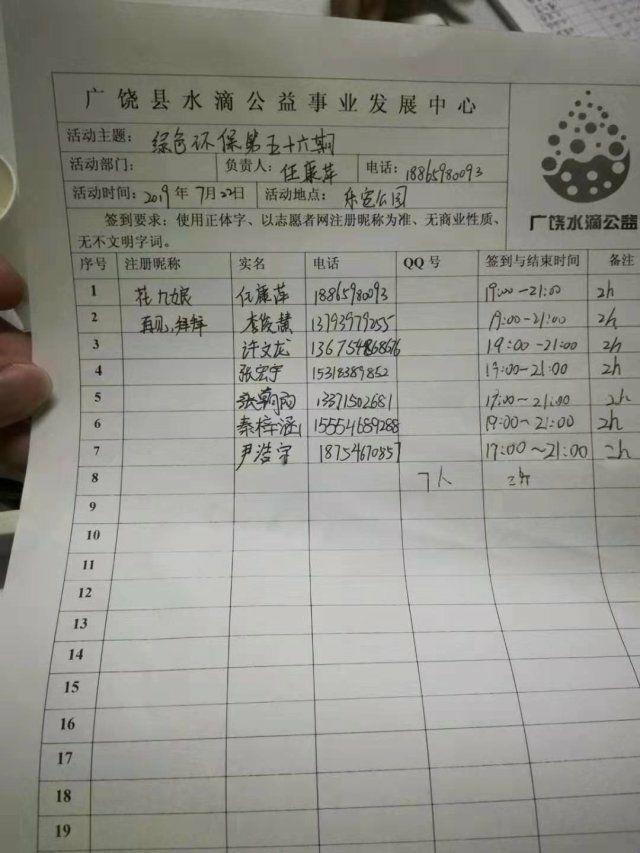 广饶县水滴公益事业发展中心
活动主题： 绿色环保第五十六期
活动部门： 负责人：任廉萍 电话：18865980093
活动时间：2019年7月22日 活动地点：乐安公园
签到要求：使用正体字、以志愿者网注册昵称为准、无商业性质、
无不文明字词。
广饶水滴公益
序号 注册昵称 实名 电话 QQ号 签到与结束时间 备注
1 花九娘 任廉萍 18865980093 19:00-21:00 2h
2 再见,拜拜 李俊慧 13793979255 19:00-21:00 2h
3 许文龙 19:00-21:00 2h
4 张宏宇 15318389852 19:00-21:00 2h
5 张朝雨 13371502681 19:00-21:00 2h
6 秦梓涵 15554689288 19:00-21:00 2h
7 尹浩宇 18754670857 19:00~21:00 2h
8 7人
9
10
11
12
13
14
15
16
17
18
19